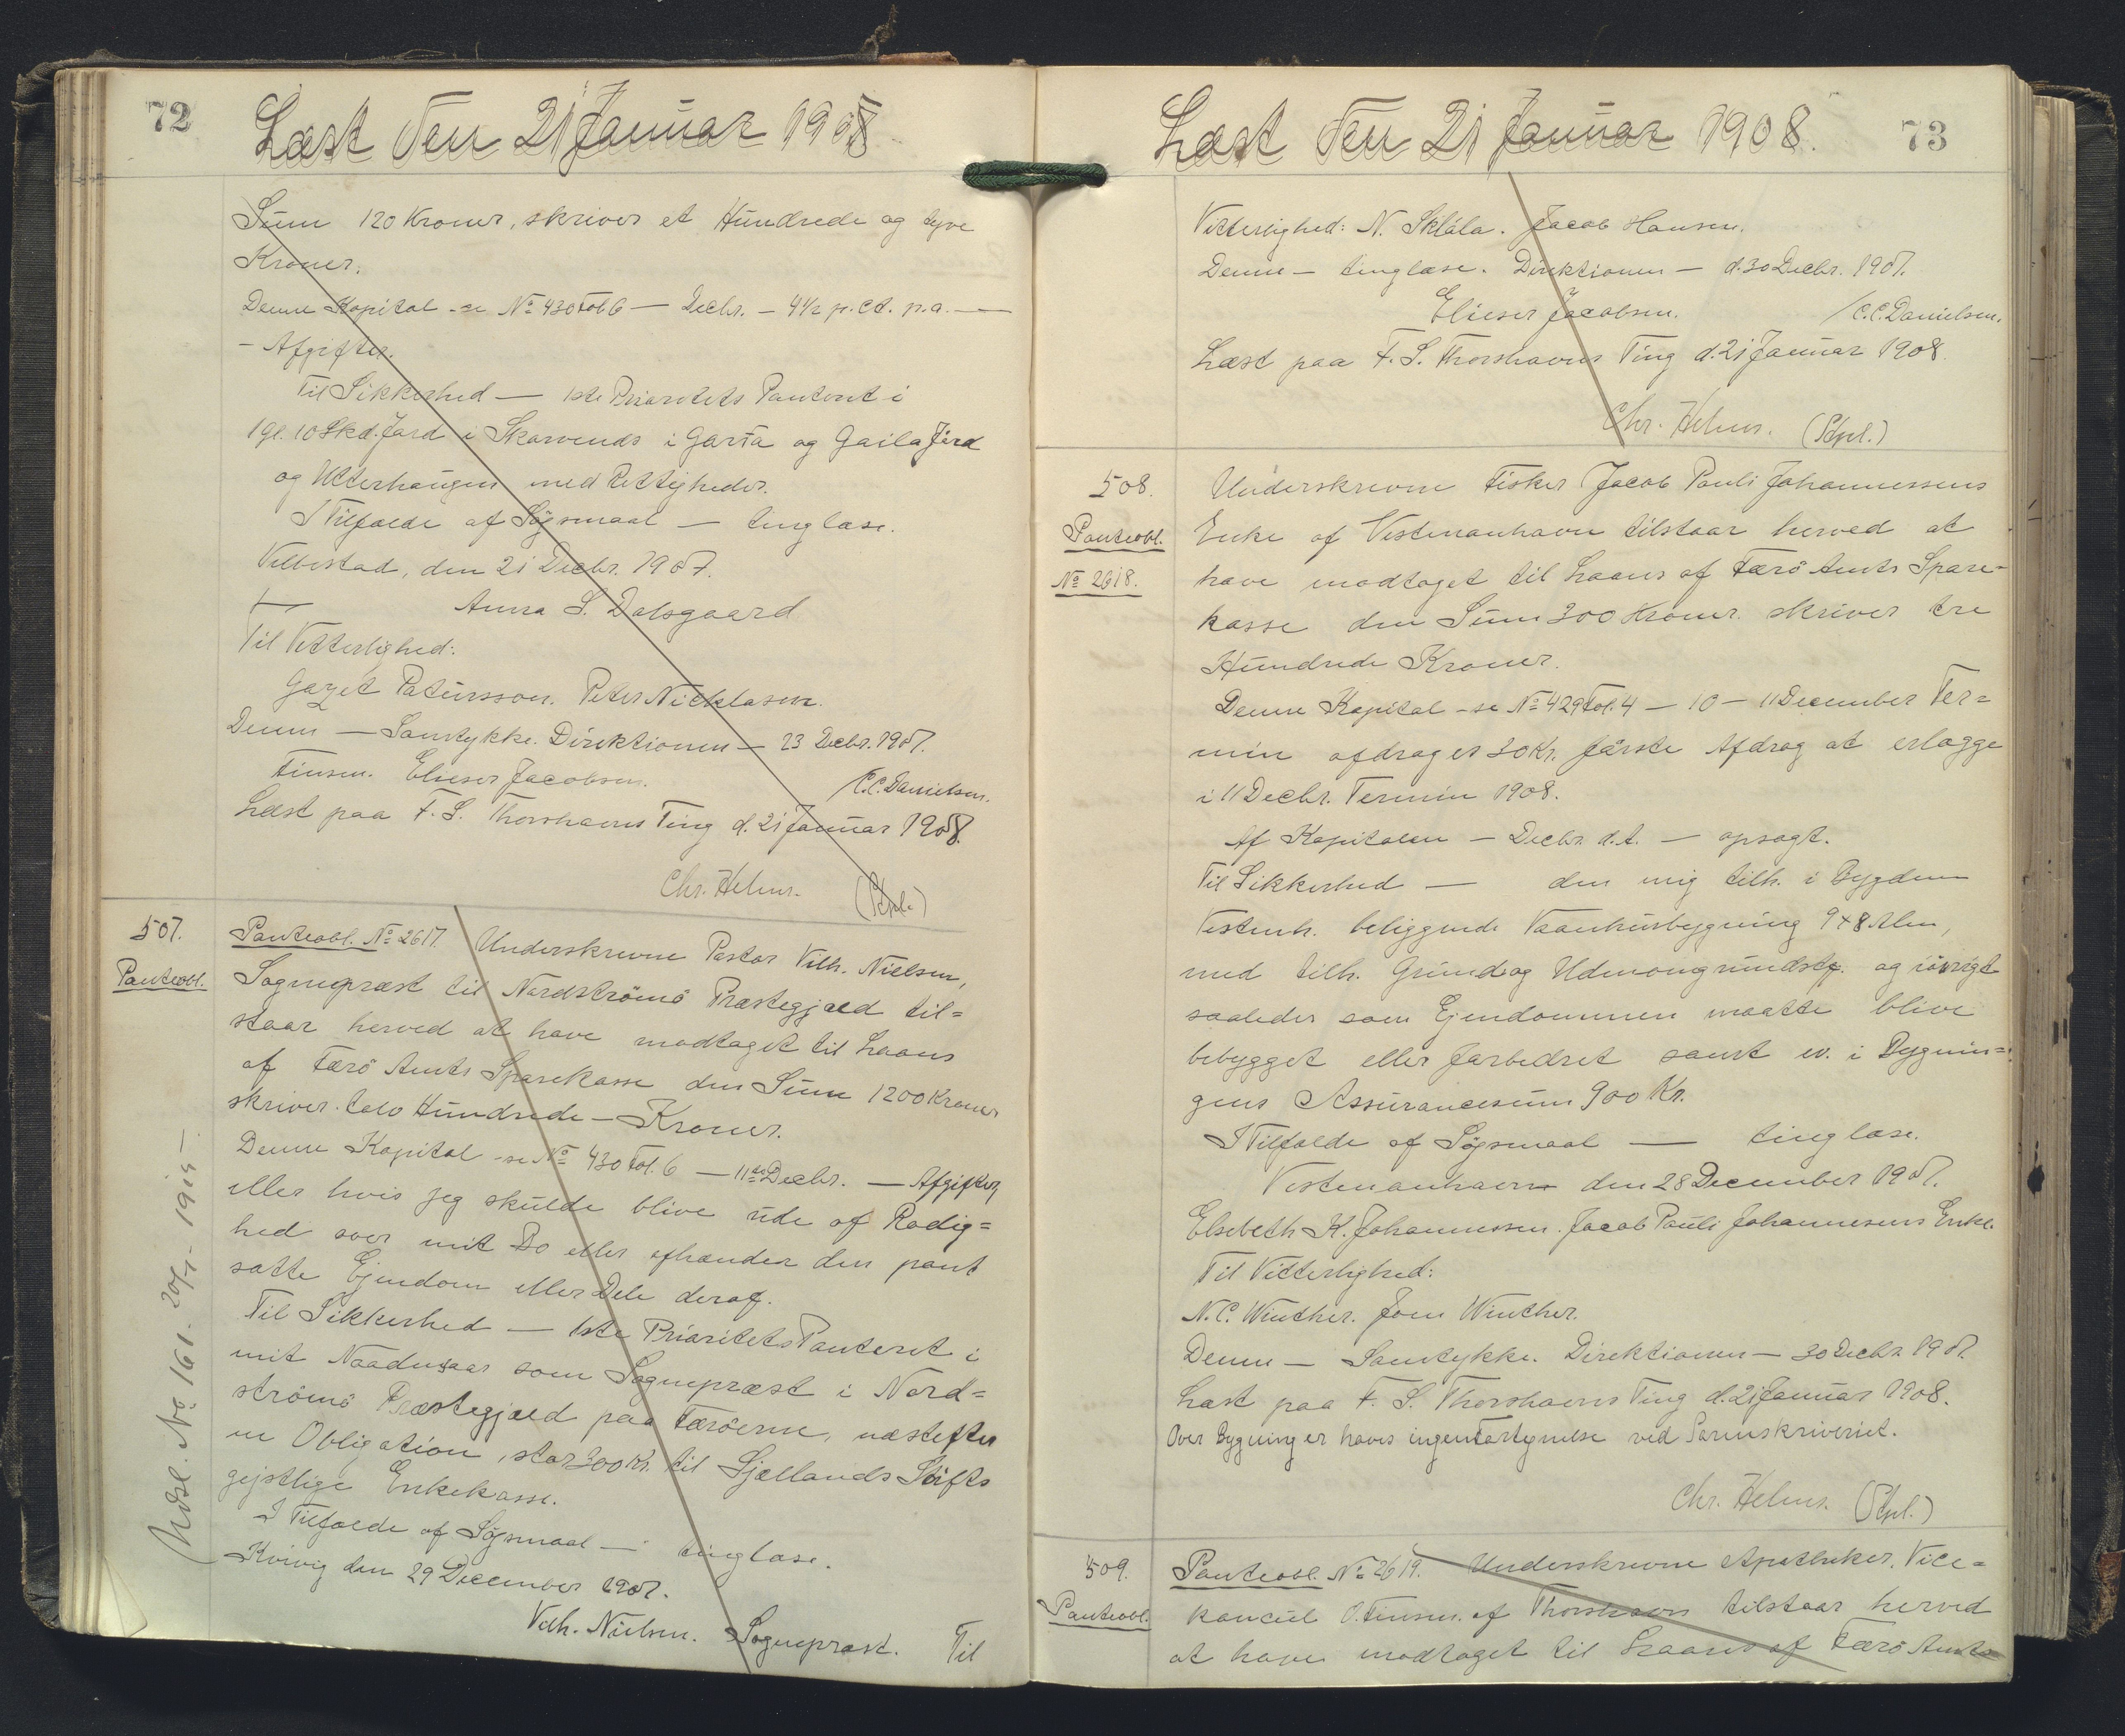 72
Læst den 21 Januar 1908
Sum 120 Kroner, skriver et Hundrede og tyve
Kroner.
Denne Kapital - se No 430 Fol 6 — Decbr. — 4½ p. ct. p.a. —
- Afgifter.
Til Sikkerhed — 1ste Prioritets Panteret i
1 gl. 10 Skd. Jord i Skarvends i Garta og Gaila Jord
og Utterhaugen med Rettigheder.
I Tilfælde af Søgsmaal — tinglæse.
Velbestad, den 21 Decbr. 1907.
Anna S. Dalsgaard
Til Vitterlighed:
Gazet Patursson. Peter Nicklasen.
Denne — Samtykke. Direktionen — 23 Decbr. 1907.
Finsen. Elieser Jacobsen. / C.C. Danielsen.
Læst paa F. S. Thorshavns Ting d. 21 Januar 1908.
Chr. Helms. (Kpl.)
507.
Panteobl.
Panteobl. No 2617. Underskrevne Pastor Vilh. Nielsen,
Sognepræst til Nordströmö Præstegjæld til=
staar herved at have modtaget til Laans
af Færö Amts Sparekasse den Sum 1200 Kroner
skriver tolv Hundrede — Kroner.
Denne Kapital - se No 430 Fol. 6 — 11te Decbr. — Afgifter,
eller hvis jeg skulde blive ude af Raadig=
hed over mit Bo eller afhænder den pant
satte Ejendom eller Dele deraf.
Til Sikkerhed — 1ste Prioritets Panteret i
mit Naadensaar som Sognepræst i Nord=
strömö Præstegjæld paa Færöerne, næstefter
en Obligation, stor 300 Kr. til Sjællands Stifts
gejstlige Enkekasse.
I Tilfælde af Søgsmaal — tinglæse.
Kvivig den 29 December 1907.
Vilh. Nielsen. Sognepræst. Til
Udsl. No 161. 20/1 - 1914 -
73
Læst den 21 Januar 1908.
Vitterlighed: N. Sklála. Jacob Hansen.
Denne — tinglæse. Direktionen — d. 30 Decbr. 1907.
Elieser Jacobsen. / C.C. Danielsen.
Læst paa F. S. Thorshavns Ting d. 21 Januar 1908
Chr. Helms. (Kpl.)
508.
Panteobl.
No 2618.
Underskrevne Fisker Jacob Pauli Johannessens
Enke af Vestmanhavn tilstaar herved at
have modtaget til Laans af Færö Amts Spare-
kasse den Sum 300 Kroner. skriver tre
Hundrede Kroner.
Denne Kapital - se No 429 Fol. 4 — 10 — 11 December Ter=
min afdrages 30 Kr. første Afdrag at erlægge
i 11 Decbr. Termin 1908.
Af Kapitalen — Decbr. d. A. — opsagt.
Til Sikkerhed — den mig tilh. i Bygden
Vestmh. beliggende Vaanhusbygning 9 x 8 Alen,
med tilh. Grund og Udmongrundstg. og iövrigt
saaledes som Ejendommen maatte blive
bebygget eller forbedret samt ev. i Bygnin=
gens Assurancesum 900 Kr.
I Tilfælde af Søgsmaal — tinglæse.
Vestmanhavn den 28 December 1907.
Elsebeth K. Johannessen. Jacob Pauli Johannesens Enke.
Til Vitterlighed:
N. C. Winther. Joen Winther.
Denne — Samtykke. Direktionen — 30 Decbr. 1907.
Læst paa F. S. Thorshavns Ting d. 21 Januar 1908.
Over Bygning er haves ingen Fortegnelse ved Sorenskriveriet.
Chr. Helms. (Kpl.)
509.
Panteobl.
Panteobl. No 2619. Underskrevne Apotheker, Vice=
konsul O. Finsen. af Thorshavn tilstaar herved
at have modtaget til Laans af Færö Amts